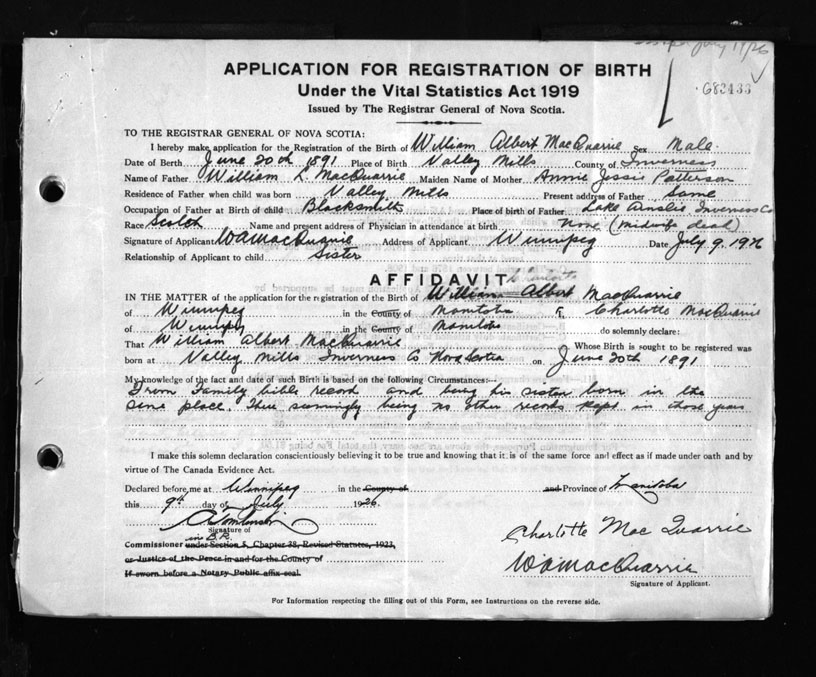 July 19/26
APPLICATION FOR REGISTRATION OF BIRTH
Under the Vital Statistics Act 1919
683433
Issued by The Registrar General of Nova Scotia.
TO THE REGISTRAR GENERAL OF NOVA SCOTIA:
I hereby make application for the Registration of the Birth of William Albert MacQuarrie Sex Male
Date of Birth June 20th 1891 Place of Birth Valley Mills County of Inverness
Name of Father William L MacQuarrie Maiden Name of Mother Annie Jessie Patterson
Residence of Father when child was born Valley Mills Present address of Father Same
Occupation of Father at Birth of child Blacksmith Place of birth of Father Lake Ainslie Inverness Co
Race Scotch Name and present address of Physician in attendance at birth None (midwife dead)
Signature of Applicant W A MacQuarrie Address of Applicant Winnipeg Date July 9, 1926
Relationship of Applicant to child Sister
AFFIDAVIT Charlotte
IN THE MATTER of the application for the registration of the Birth of William Albert MacQuarrie
of Winnipeg in the County of Manitoba I, Charlotte MacQuarrie
of Winnipeg in the County of Manitoba do solemnly declare:
That William Albert MacQuarrie Whose Birth is sought to be registered was
born at Valley Mills Inverness Co Nova Scotia on June 20th 1891
My knowledge of the fact and date of such Birth is based on the following Circumstances:—
From Family bible record and being his sister born in the
same place. There seemingly being no other records kept in those years
I make this solemn declaration conscientiously believing it to be true and knowing that it is of the same force and effect as if made under oath and by
virtue of The Canada Evidence Act.
Declared before me at Winnipeg in the County of and Province of Manitoba
this 9th day of July 1926
Signature of
in B.R.
Commissioner under Section 5, Chapter 38, Revised Statutes, 1923,
or Justice of the Peace in and for the County of
If sworn before a Notary Public affix seal.
Charlotte MacQuarrie
W A MacQuarrie
Signature of Applicant.
For Information respecting the filling out of this Form, see Instructions on the reverse side.